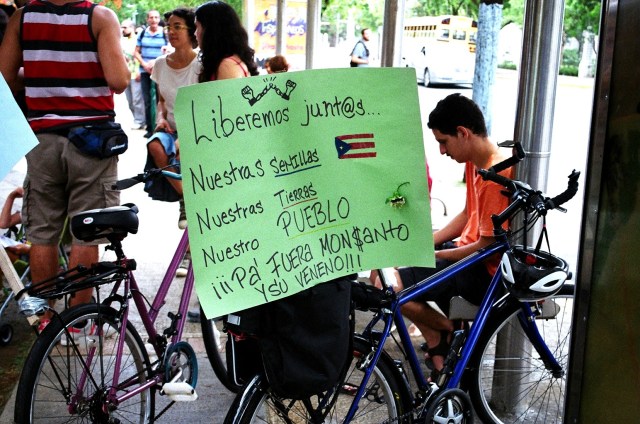 Liberemos junt@s...
Nuestras Semillas
Nuestras Tierras
Nuestro PUEBLO
¡¡¡Pa' FUERA MON$anto
Y SU VENENO!!!